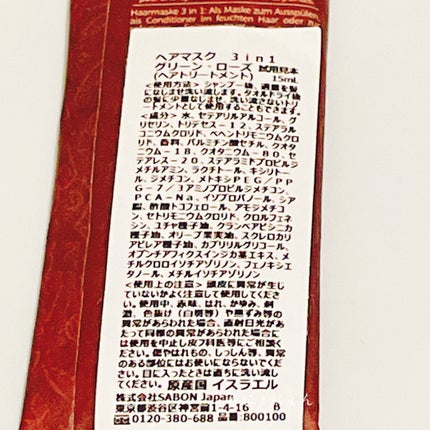 Haarmaske 3 in 1: Als Maske zum Ausspülen,
als Conditioner im feuchten Haar oder zu
ヘアマスク 3in1
グリーン・ローズ 試用見本
(ヘアトリートメント) 15mL
<使用方法>シャンプー後、適量を髪
になじませ洗い流します。タオルドライ後
の髪に少量なじませ、洗い流さないトリ
ートメントとしても使用できます。
<成分> 水、セテアリルアルコール、グ
リセリン、トリデセス-12、ステアラル
コニウムクロリド、ベヘントリモニウムク
ロリド、香料、パルミチン酸セチル、クオタ
ニウム-18、クオタニウム-80、セ
テアレス-20、ステアラミドプロピルジ
メチルアミン、ラクチトール、キシリトー
ル、ジメチコン、メトキシPEG/PP
G-7/3アミノプロピルジメチコン、
PCA-Na、イソプロパノール、シア
脂、酢酸トコフェロール、アモジメチコ
ン、セトリモニウムクロリド、クロルフェネ
シン、ユチャ種子油、クランベアビシニカ
種子油、オリーブ果実油、スクレロカリ
アビレア種子油、カプリリルグリコール、
オプンチアフィクスインジカ茎エキス、メ
チルクロロイソチアゾリノン、フェノキシエ
タノール、メチルイソチアゾリノン
<使用上の注意> 頭皮に異常が生じ
ていないかよく注意して使用してくださ
い。使用中、赤味、はれ、かゆみ、刺
激、色抜け(白斑等)や黒ずみ等の
異常があらわれた場合、直射日光があ
たって同様の異常があらわれた場合に
は使用を中止し皮フ科医等に相談くだ
さい。傷やはれもの、しっしん等、異常
のある部位にはお使いにならないでくだ
さい。目に入ったときは直ちに洗い流し
てください。 原産国 イスラエル
株式会社SABON Japan
東京都渋谷区神宮前1-4-16 B
0120-380-688 品番:800100